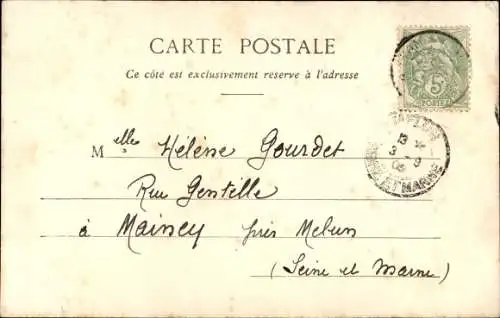 CARTE POSTALE
Ce côté est exclusivement réservé à l'adresse
5
POSTES
Melle Hélène Gourdet
Rue Gentille
à Maincy près Melun
(Seine et Marne)
ET MARNE